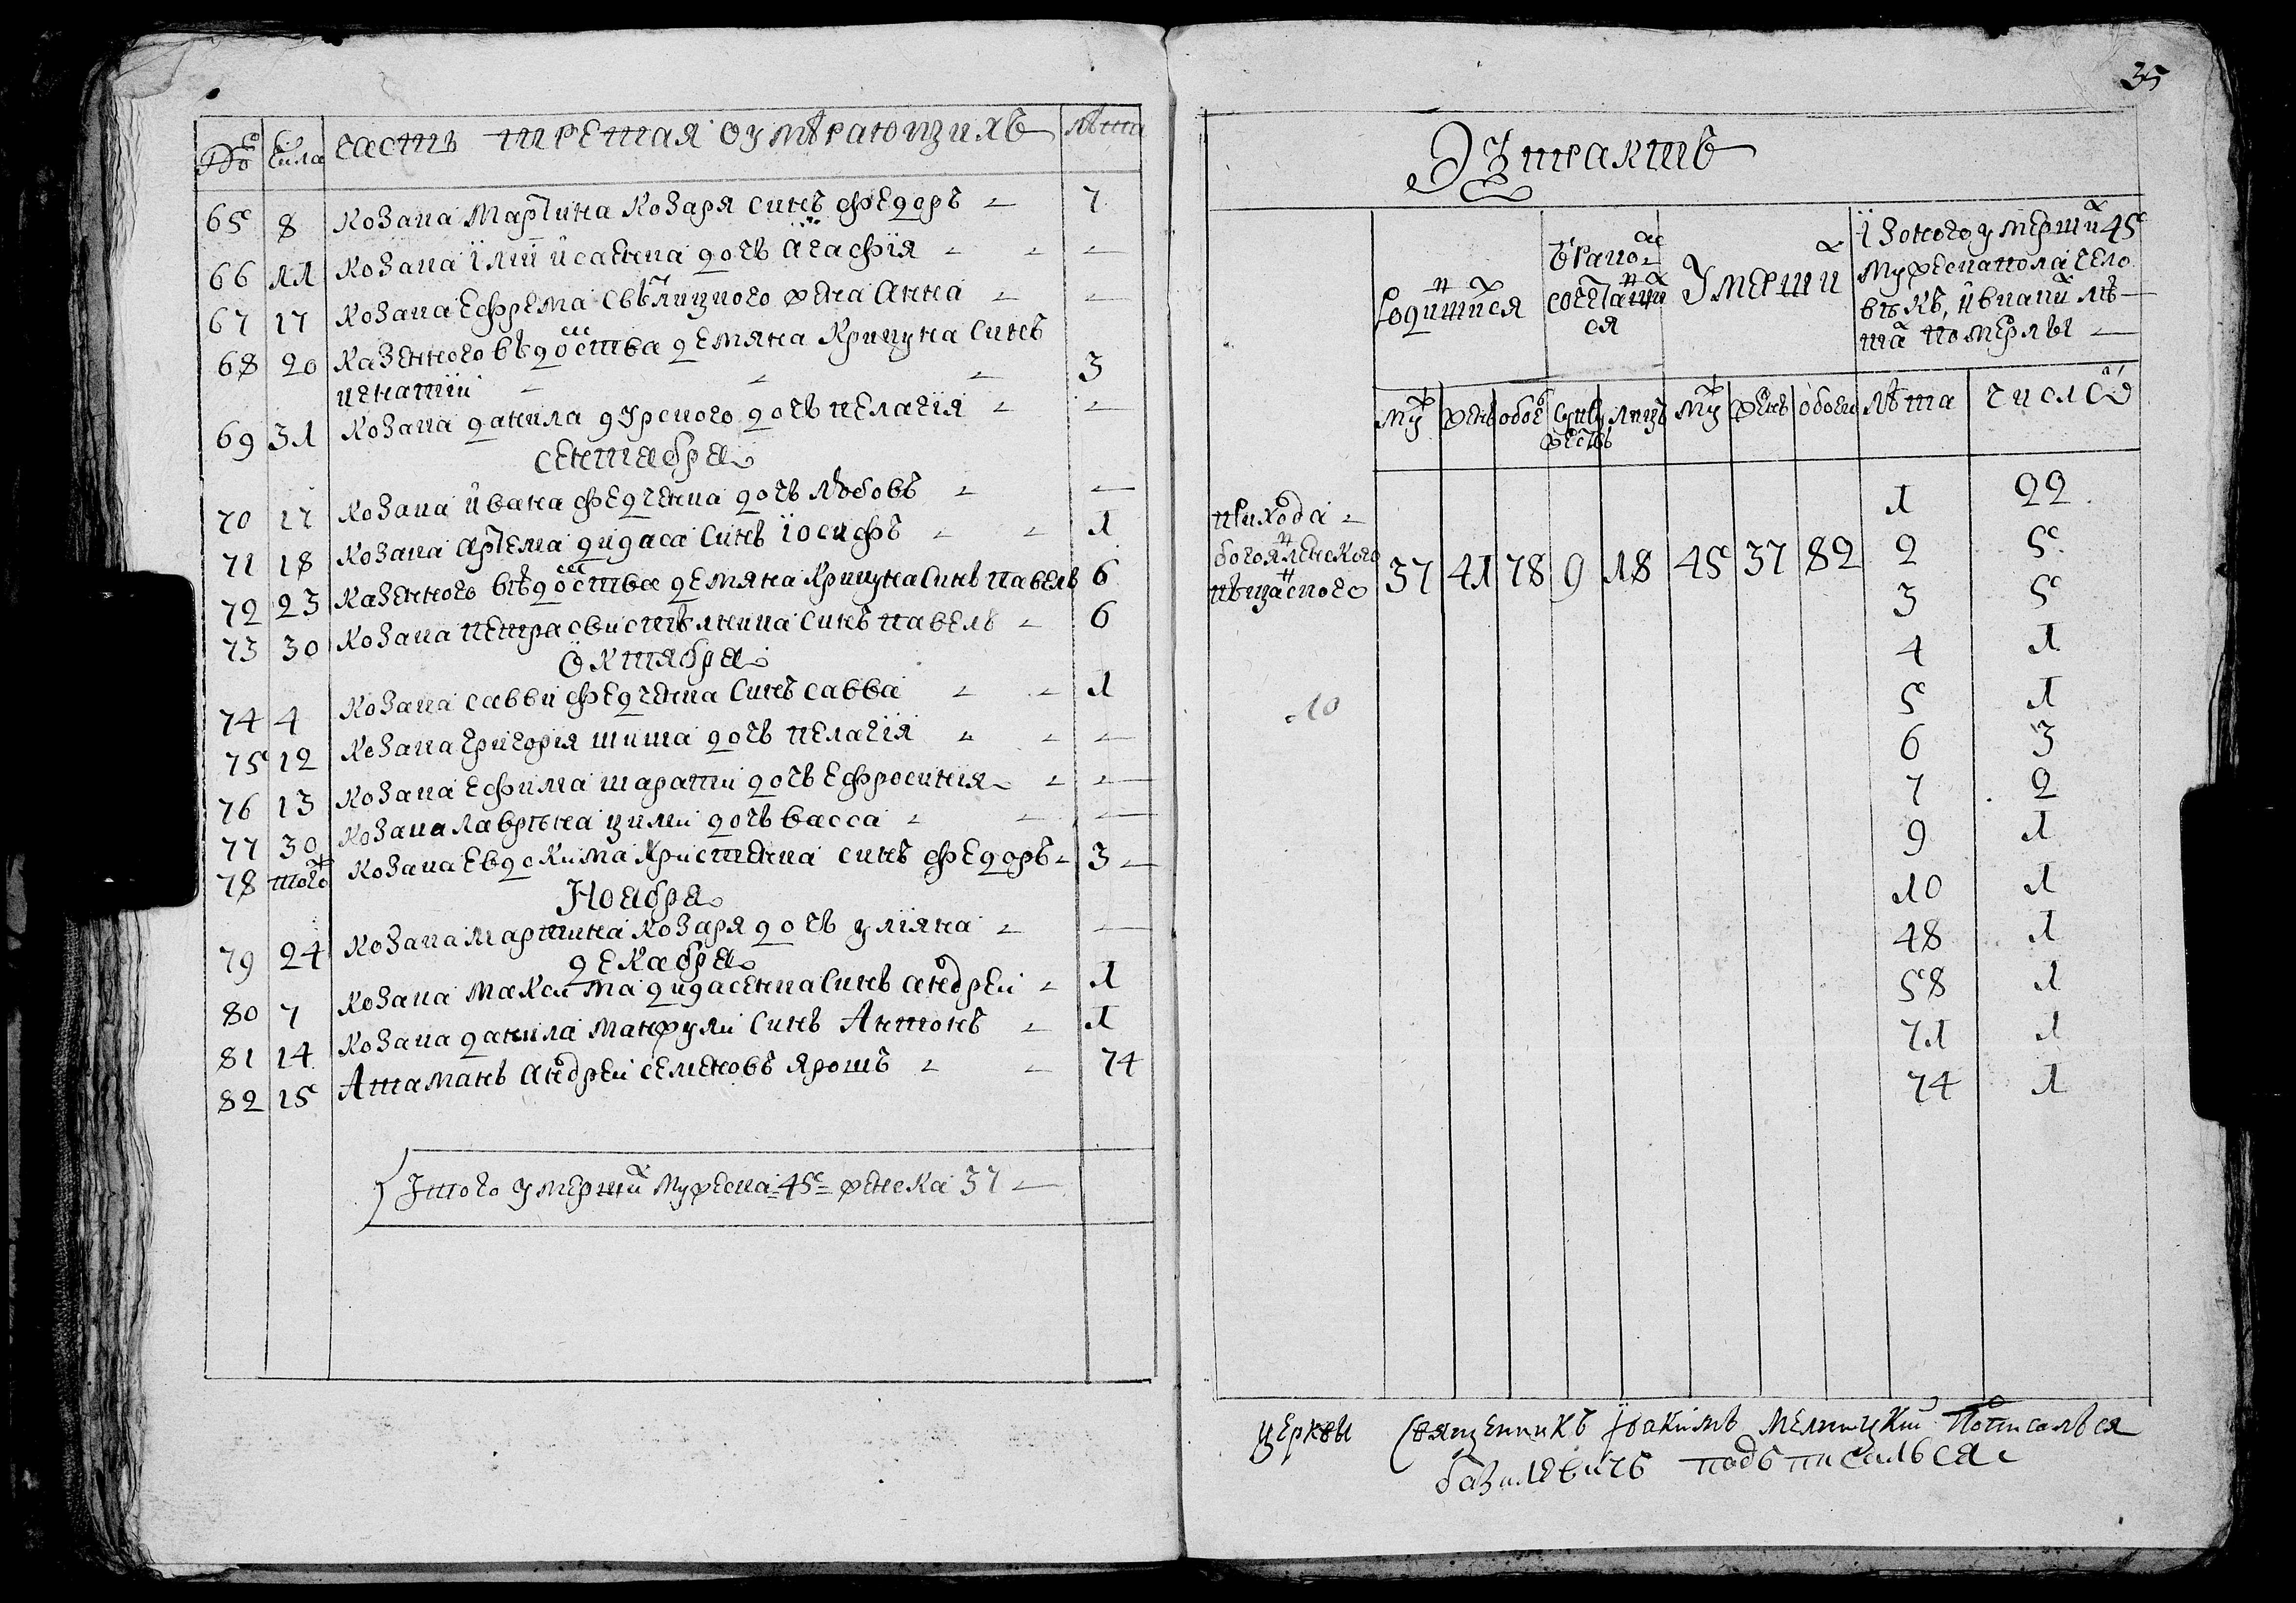 35
No Числа Часть третая оумѣрающихъ лѣта
65 8 Козака Мартина Козаря синъ Федоръ 7
66 11 Козака Iлiи Исаенка дочь Агафiя
67 17 Козака Ефрема Свѣтлицкого жена Анна
68 20 Казенного вѣдоства демяна Крипука Синъ
игнатiй 3
69 31 Козака данила дурского дочь пелагiя
сентабра
70 17 Козака Ивана Федченка дочь Любовъ
71 18 Козака Артема дидаса Синъ Iосифъ 1
72 23 Казенного вѣдоства демяна Крипука Синъ павелъ 6
73 30 Козака петра свистѣлника Синъ павелъ 6
Октября
74 4 Козака савви Федченка Синъ савва 1
75 12 Козака григорiя шиша дочь пелагiя
76 13 Козака Ефима шарапи дочь Ефросинiя
77 30 Козака лаврѣна цили дочь васса
78 того Козака Евдокима Христенка синъ Федоръ 3
Ноабра
79 24 Козака Мартина Козаря дочь улiяна
декабра
80 7 Козака Максима дидасенка Синъ Андрей 1
81 14 Козака данила Манжули Синъ Антонъ 1
82 15 Атаманъ Андрей семеновъ Ярошъ 74
Iтого умершихъ мужеска 45 женска 37
Эзтрактъ
Родившихся Брако сочетавшихся Умершихъ Iзоного умершихъ 45
мужеска пола чело
вѣкъ, Икакихъ лѣ
та померлы
муж женъ обоег супружествъ лицъ муж женъ обоего лѣта число
прихода
богоявленского
ивицкого 37 41 78 9 18 45 37 82
1 22
2 5
3 5
4 1
5 1
6 3
7 2
9 1
10 1
48 1
58 1
71 1
74 1
10
церкви Священникъ Iоакимъ Мелницкий Потписался
базилевичъ подъписалься